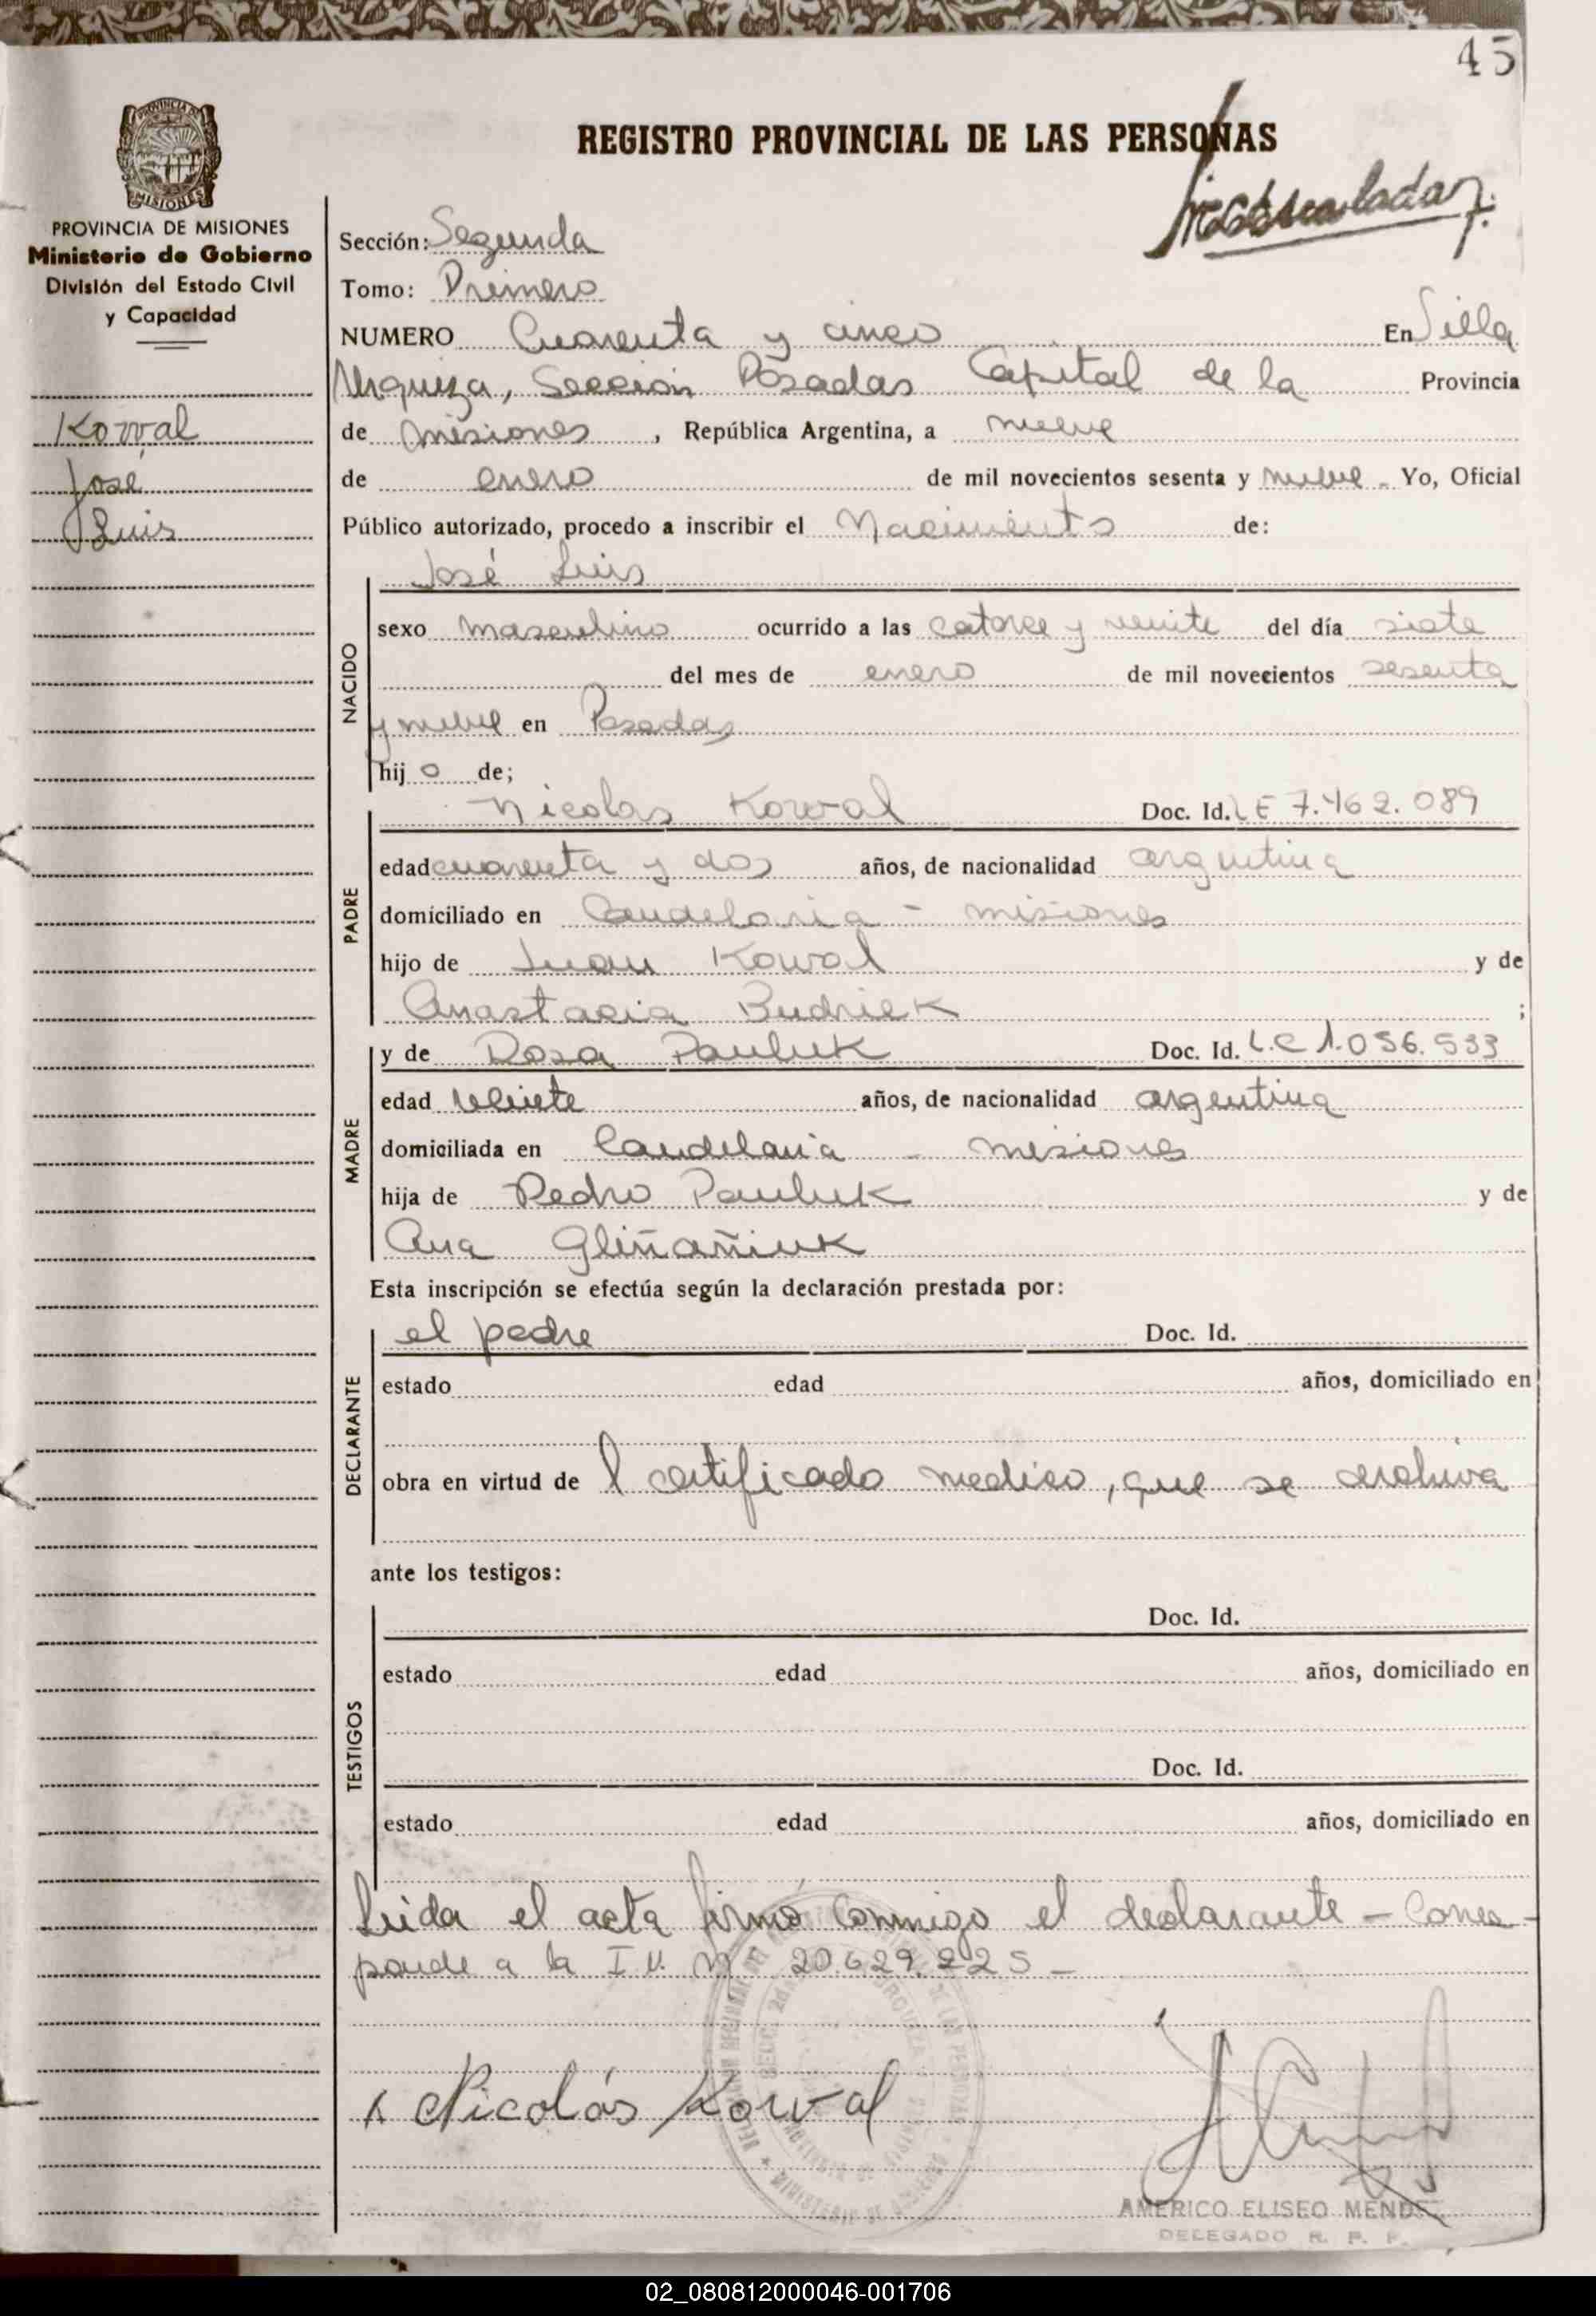 45
PROVINCIA DE
MISIONES
REGISTRO PROVINCIAL DE LAS PERSONAS
PROVINCIA DE MISIONES
Ministerio de Gobierno
División del Estado Civil
y Capacidad
Korval
José
Luis
Sección: Segunda
Tomo: Primero
NUMERO Cuarenta y cinco En Villa
Urquiza, Sección Posadas Capital de la Provincia
de Misiones, República Argentina, a nueve
de enero de mil novecientos sesenta y nueve. Yo, Oficial
Público autorizado, procedo a inscribir el Nacimiento de:
José Luis
NACIDO
sexo masculino ocurrido a las catorce y veinte del día siete
del mes de enero de mil novecientos sesenta
y nueve en Posadas
hijo de;
PADRE
Nicolas Korval Doc. Id. L E 7.462.089
edad cuarenta y dos años, de nacionalidad argentina
domiciliado en Candelaria - Misiones
hijo de Juan Kowal y de
Anastacia Budniek ;
MADRE
y de Rosa Pauluk Doc. Id. L.C 1.056.533
edad veinte años, de nacionalidad argentina
domiciliada en Candelaria - Misiones
hija de Pedro Pauluk y de
Ana Gliñañiuk
Esta inscripción se efectúa según la declaración prestada por:
DECLARANTE
el padre Doc. Id.
estado edad años, domiciliado en
obra en virtud de l certificado medico, que se archiva
ante los testigos:
TESTIGOS
Doc. Id.
estado edad años, domiciliado en
Doc. Id.
estado edad años, domiciliado en
Leida el acta firmó conmigo el declarante - Corres-
ponde a la I.U. Nº 20.629.225 -
x Nicolás Korval
AMERICO ELISEO MENDEZ
DELEGADO R. P. P.
02_080812000046-001706